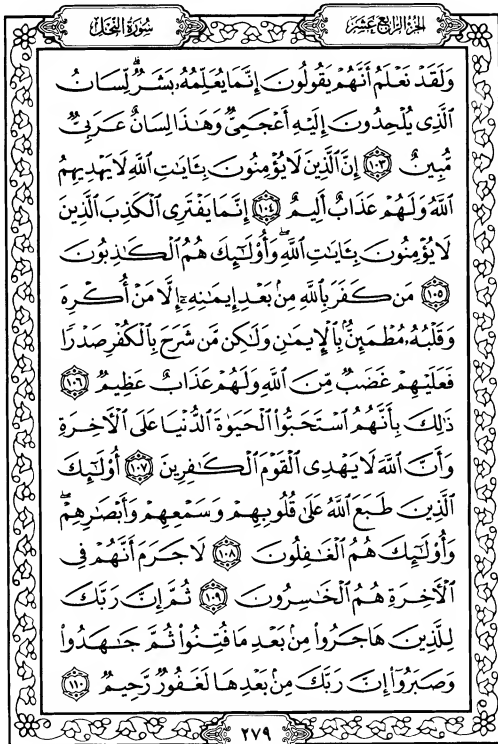 الجزء الرابع عشر
سورة النحل
وَلَقَدْ نَعْلَمُ أَنَّهُمْ يَقُولُونَ إِنَّمَا يُعَلِّمُهُۥ بَشَرٌ ۗ لِّسَانُ
ٱلَّذِى يُلْحِدُونَ إِلَيْهِ أَعْجَمِىٌّ وَهَٰذَا لِسَانٌ عَرَبِىٌّ
مُّبِينٌ ١٠٣ إِنَّ ٱلَّذِينَ لَا يُؤْمِنُونَ بِـَٔايَٰتِ ٱللَّهِ لَا يَهْدِيهِمُ
ٱللَّهُ وَلَهُمْ عَذَابٌ أَلِيمٌ ١٠٤ إِنَّمَا يَفْتَرِى ٱلْكَذِبَ ٱلَّذِينَ
لَا يُؤْمِنُونَ بِـَٔايَٰتِ ٱللَّهِ ۖ وَأُو۟لَٰٓئِكَ هُمُ ٱلْكَٰذِبُونَ
١٠٥ مَن كَفَرَ بِٱللَّهِ مِنۢ بَعْدِ إِيمَٰنِهِۦٓ إِلَّا مَنْ أُكْرِهَ
وَقَلْبُهُۥ مُطْمَئِنٌّۢ بِٱلْإِيمَٰنِ وَلَٰكِن مَّن شَرَحَ بِٱلْكُفْرِ صَدْرًا
فَعَلَيْهِمْ غَضَبٌ مِّنَ ٱللَّهِ وَلَهُمْ عَذَابٌ عَظِيمٌ ١٠٦
ذَٰلِكَ بِأَنَّهُمُ ٱسْتَحَبُّوا۟ ٱلْحَيَوٰةَ ٱلدُّنْيَا عَلَى ٱلْءَاخِرَةِ
وَأَنَّ ٱللَّهَ لَا يَهْدِى ٱلْقَوْمَ ٱلْكَٰفِرِينَ ١٠٧ أُو۟لَٰٓئِكَ
ٱلَّذِينَ طَبَعَ ٱللَّهُ عَلَىٰ قُلُوبِهِمْ وَسَمْعِهِمْ وَأَبْصَٰرِهِمْ ۖ
وَأُو۟لَٰٓئِكَ هُمُ ٱلْغَٰفِلُونَ ١٠٨ لَا جَرَمَ أَنَّهُمْ فِى
ٱلْءَاخِرَةِ هُمُ ٱلْخَٰسِرُونَ ١٠٩ ثُمَّ إِنَّ رَبَّكَ
لِلَّذِينَ هَاجَرُوا۟ مِنۢ بَعْدِ مَا فُتِنُوا۟ ثُمَّ جَٰهَدُوا۟
وَصَبَرُوٓا۟ إِنَّ رَبَّكَ مِنۢ بَعْدِهَا لَغَفُورٌ رَّحِيمٌ ١١٠
٢٧٩